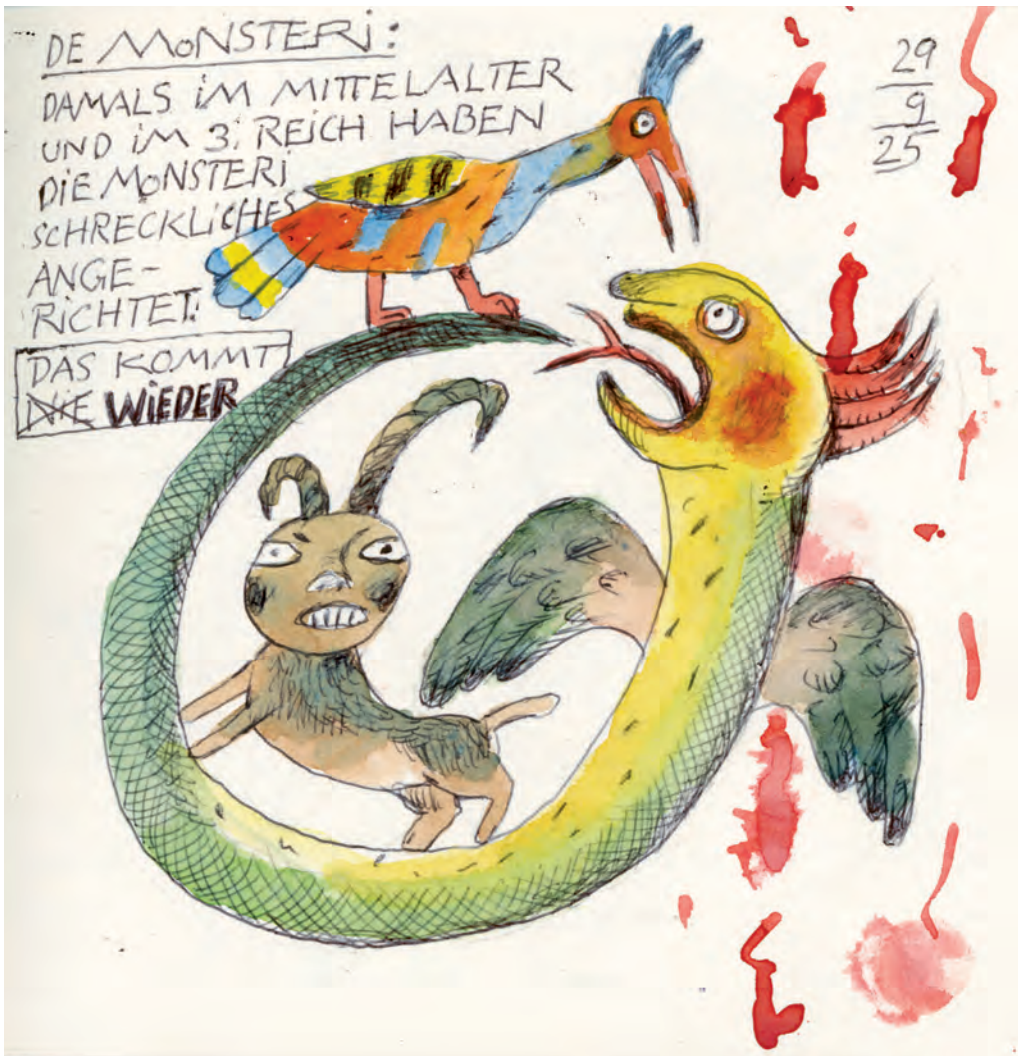 DE MONSTERi:
DAMALS iM MITTELALTER
UND iM 3. REiCH HABEN
DiE MONSTERi
SCHRECKLiCHES
ANGE-
RiCHTET.
DAS KOMMT
NiE WiEDER
29
9
25